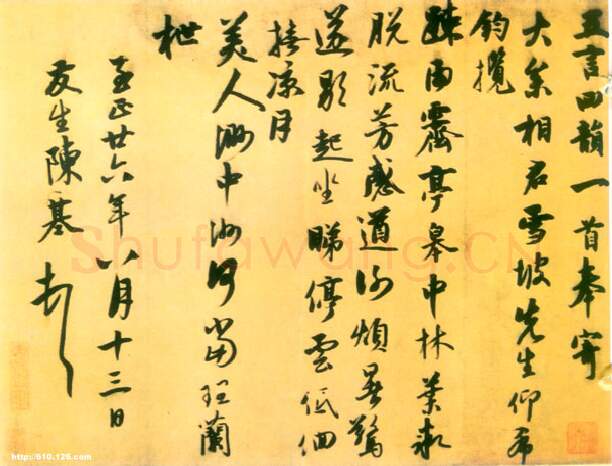 五言四韻一首奉寄
大參相君雪坡先生仰希
鈞攬
疎雨霽亭皋中林葉
脱流芳感煩暑驚
遂歇起坐睇停雲低佪
涼月
美人中洲何當理蘭
枻
至正廿六年八月十三日
友生陳基
Shufawang.CN
http://610.126.com